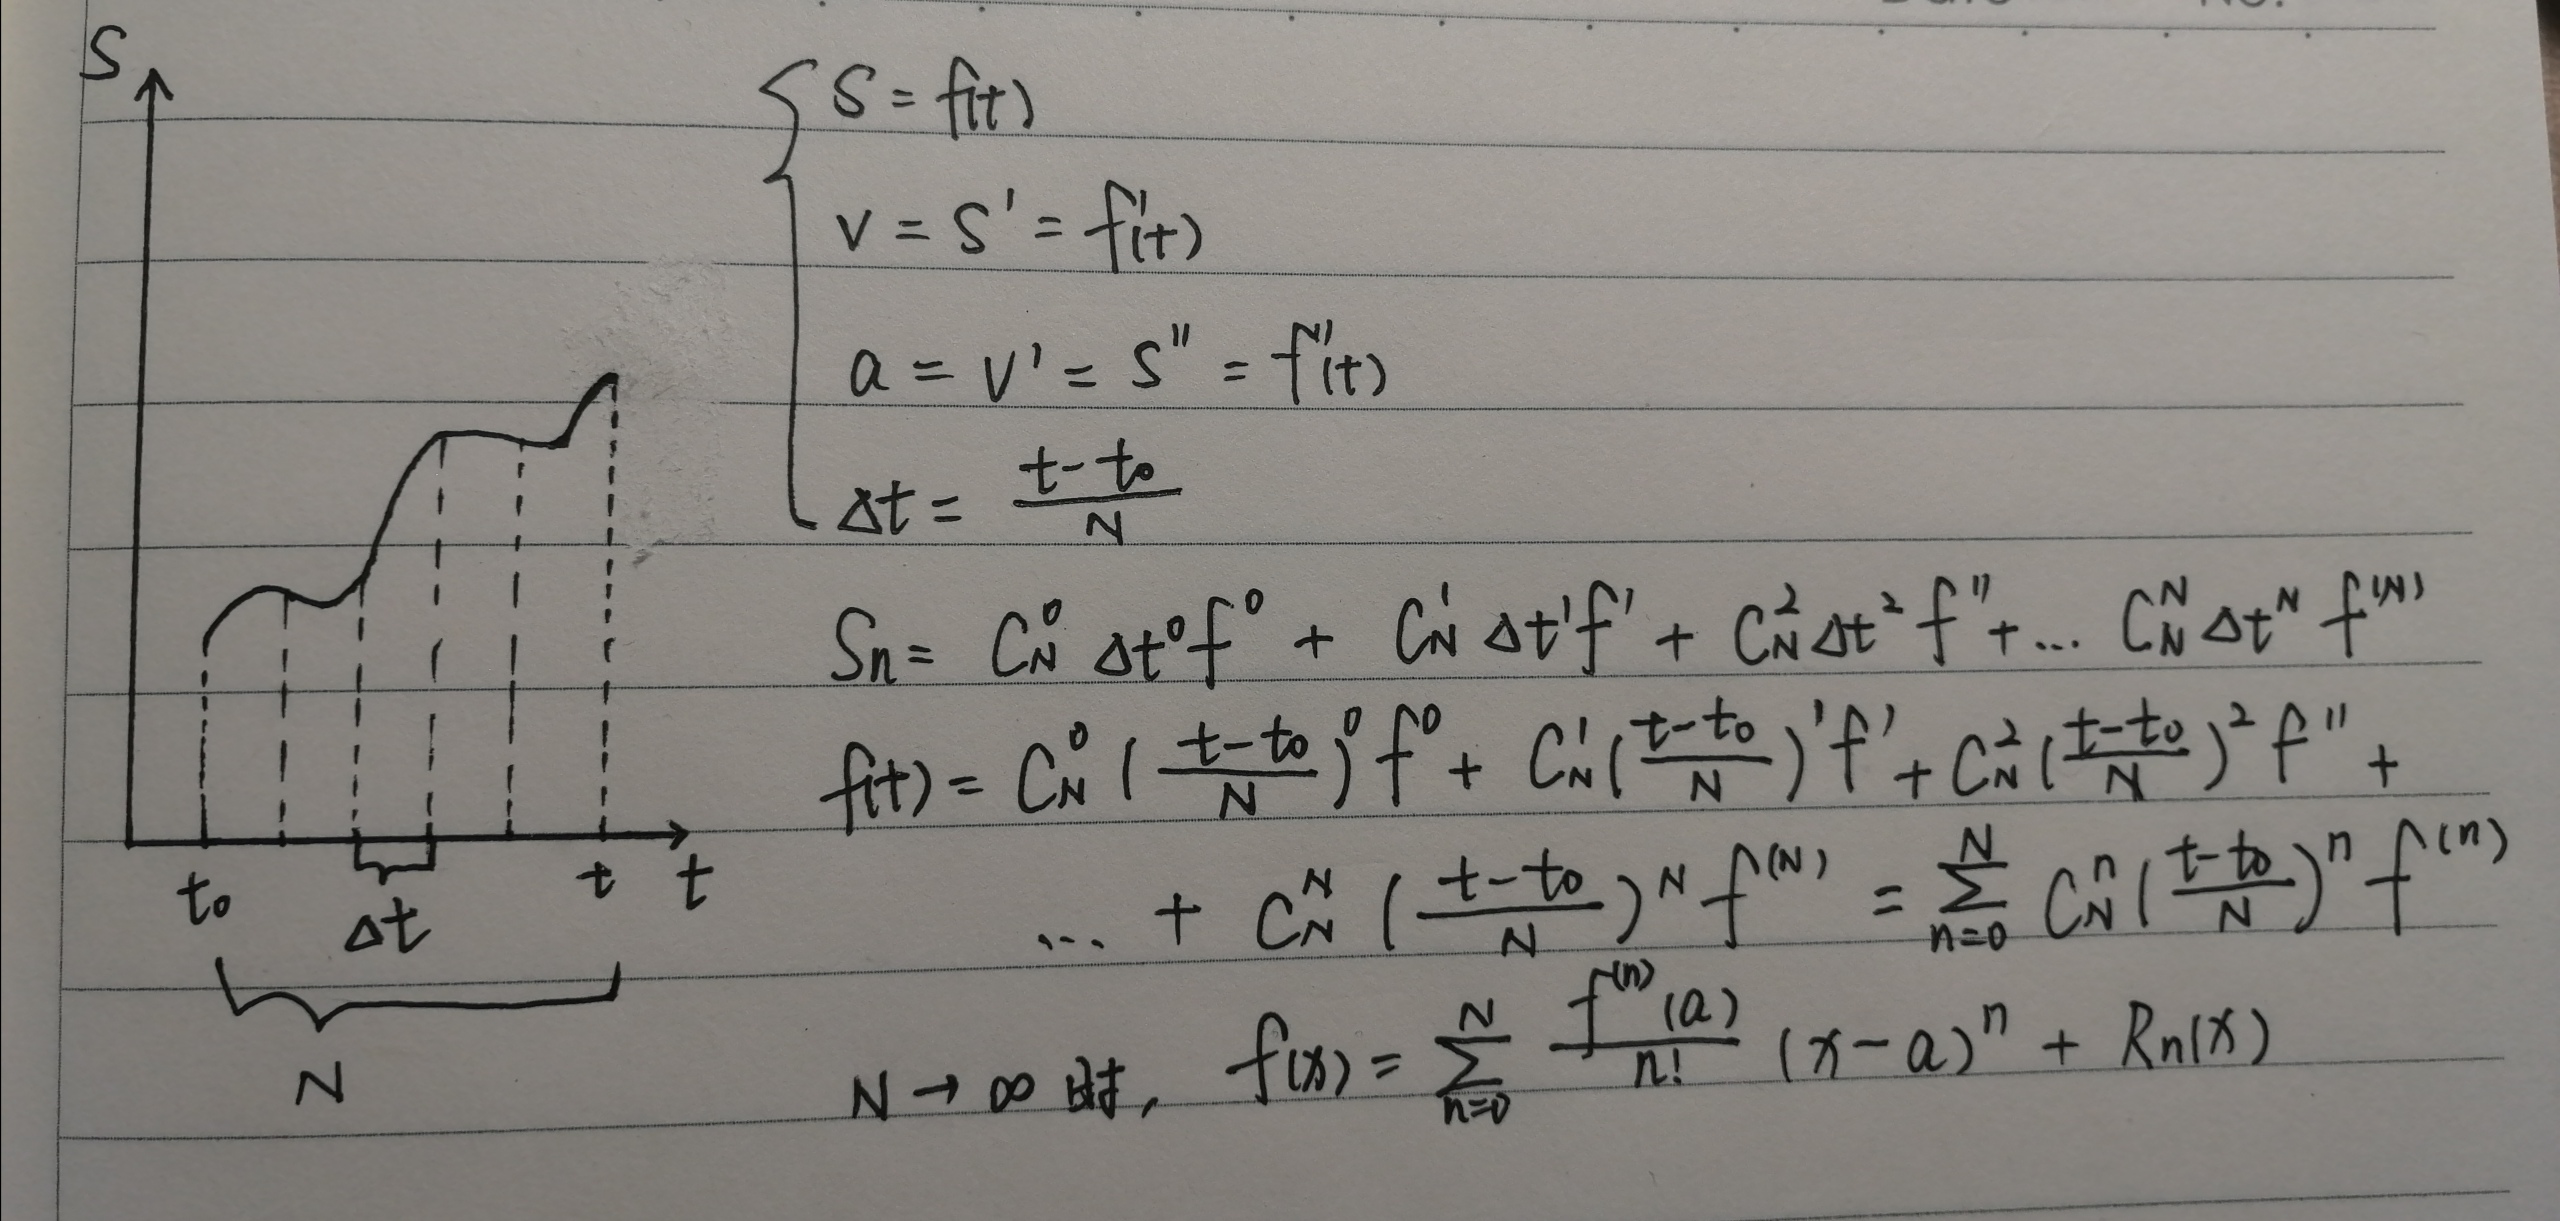 S
S = f(t)
v = S' = f'(t)
a = v' = S'' = f''(t)
Δt = (t-t₀)/N
Sn = C_N^0 Δt^0 f^0 + C_N^1 Δt^1 f' + C_N^2 Δt^2 f'' + ... C_N^N Δt^N f^(N)
f(t) = C_N^0 ((t-t₀)/N)^0 f^0 + C_N^1 ((t-t₀)/N)^1 f' + C_N^2 ((t-t₀)/N)^2 f'' +
... + C_N^N ((t-t₀)/N)^N f^(N) = Σ_{n=0}^{N} C_N^n ((t-t₀)/N)^n f^(n)
N → ∞ 时, f(x) = Σ_{n=0}^{N} f^(n)(a)/n! (x-a)^n + Rn(x)
t₀ t t
Δt
N